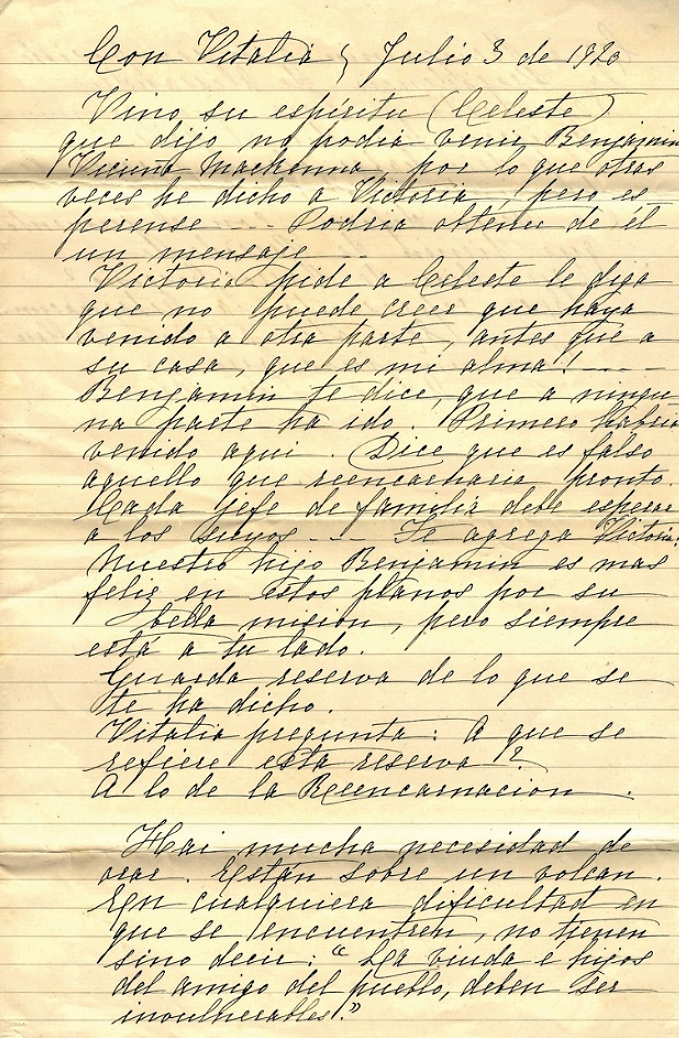 Con Vitalia, Julio 3 de 1920
Vino su espíritu (Celeste)
que dijo no podia venir Benjamin
Vicuña Mackenna, por lo que otras
veces he dicho a Victoria, pero es-
perense --- Podria obtener de él
un mensaje ---
Victoria pide a Celeste le diga
que no puede creer que haya
venido a otra parte, antes que a
su casa, que es mi alma! ----
Benjamin te dice, que a ningu-
na parte ha ido. Primero habria
venido aqui. Dice que es falso
aquello que reencarnaria pronto.
Cada jefe de familia debe esperar
a los suyos --- Te agrega Victoria:
Nuestro hijo Benjamin es mas
feliz en estos planos por su
bella mision, pero siempre
está a tu lado.
Guarda reserva de lo que se
te ha dicho.
Vitalia pregunta: A que se
refiere esta reserva?
A lo de la Reencarnacion.
Hai mucha necesidad de
orar. Están sobre un volcan.
En cualquiera dificultad en
que se encuentren, no tienen
sino decir: "La viuda e hijos
del amigo del pueblo, deben ser
invulnerables."